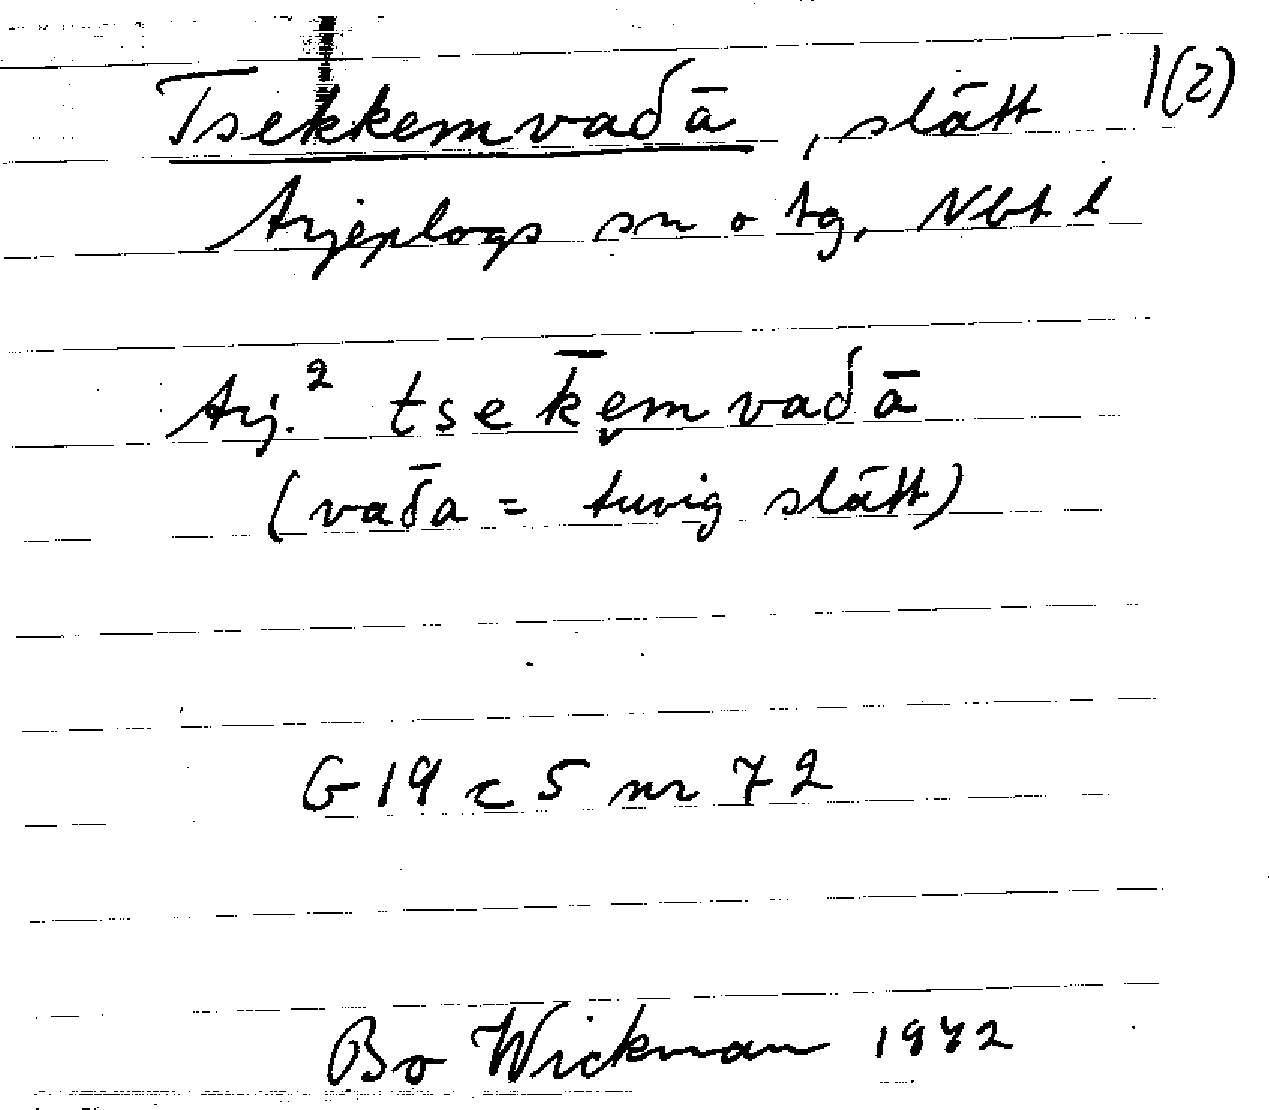 Tsekkemvaδā, slått 1(2)
Arjeplogs sn o tg, Nbt l
Arj.² tsek̄ęm vaδā
(vaδ̄a = tuvig slått)
G 19 c 5 nr 72
Bo Wickman 1942